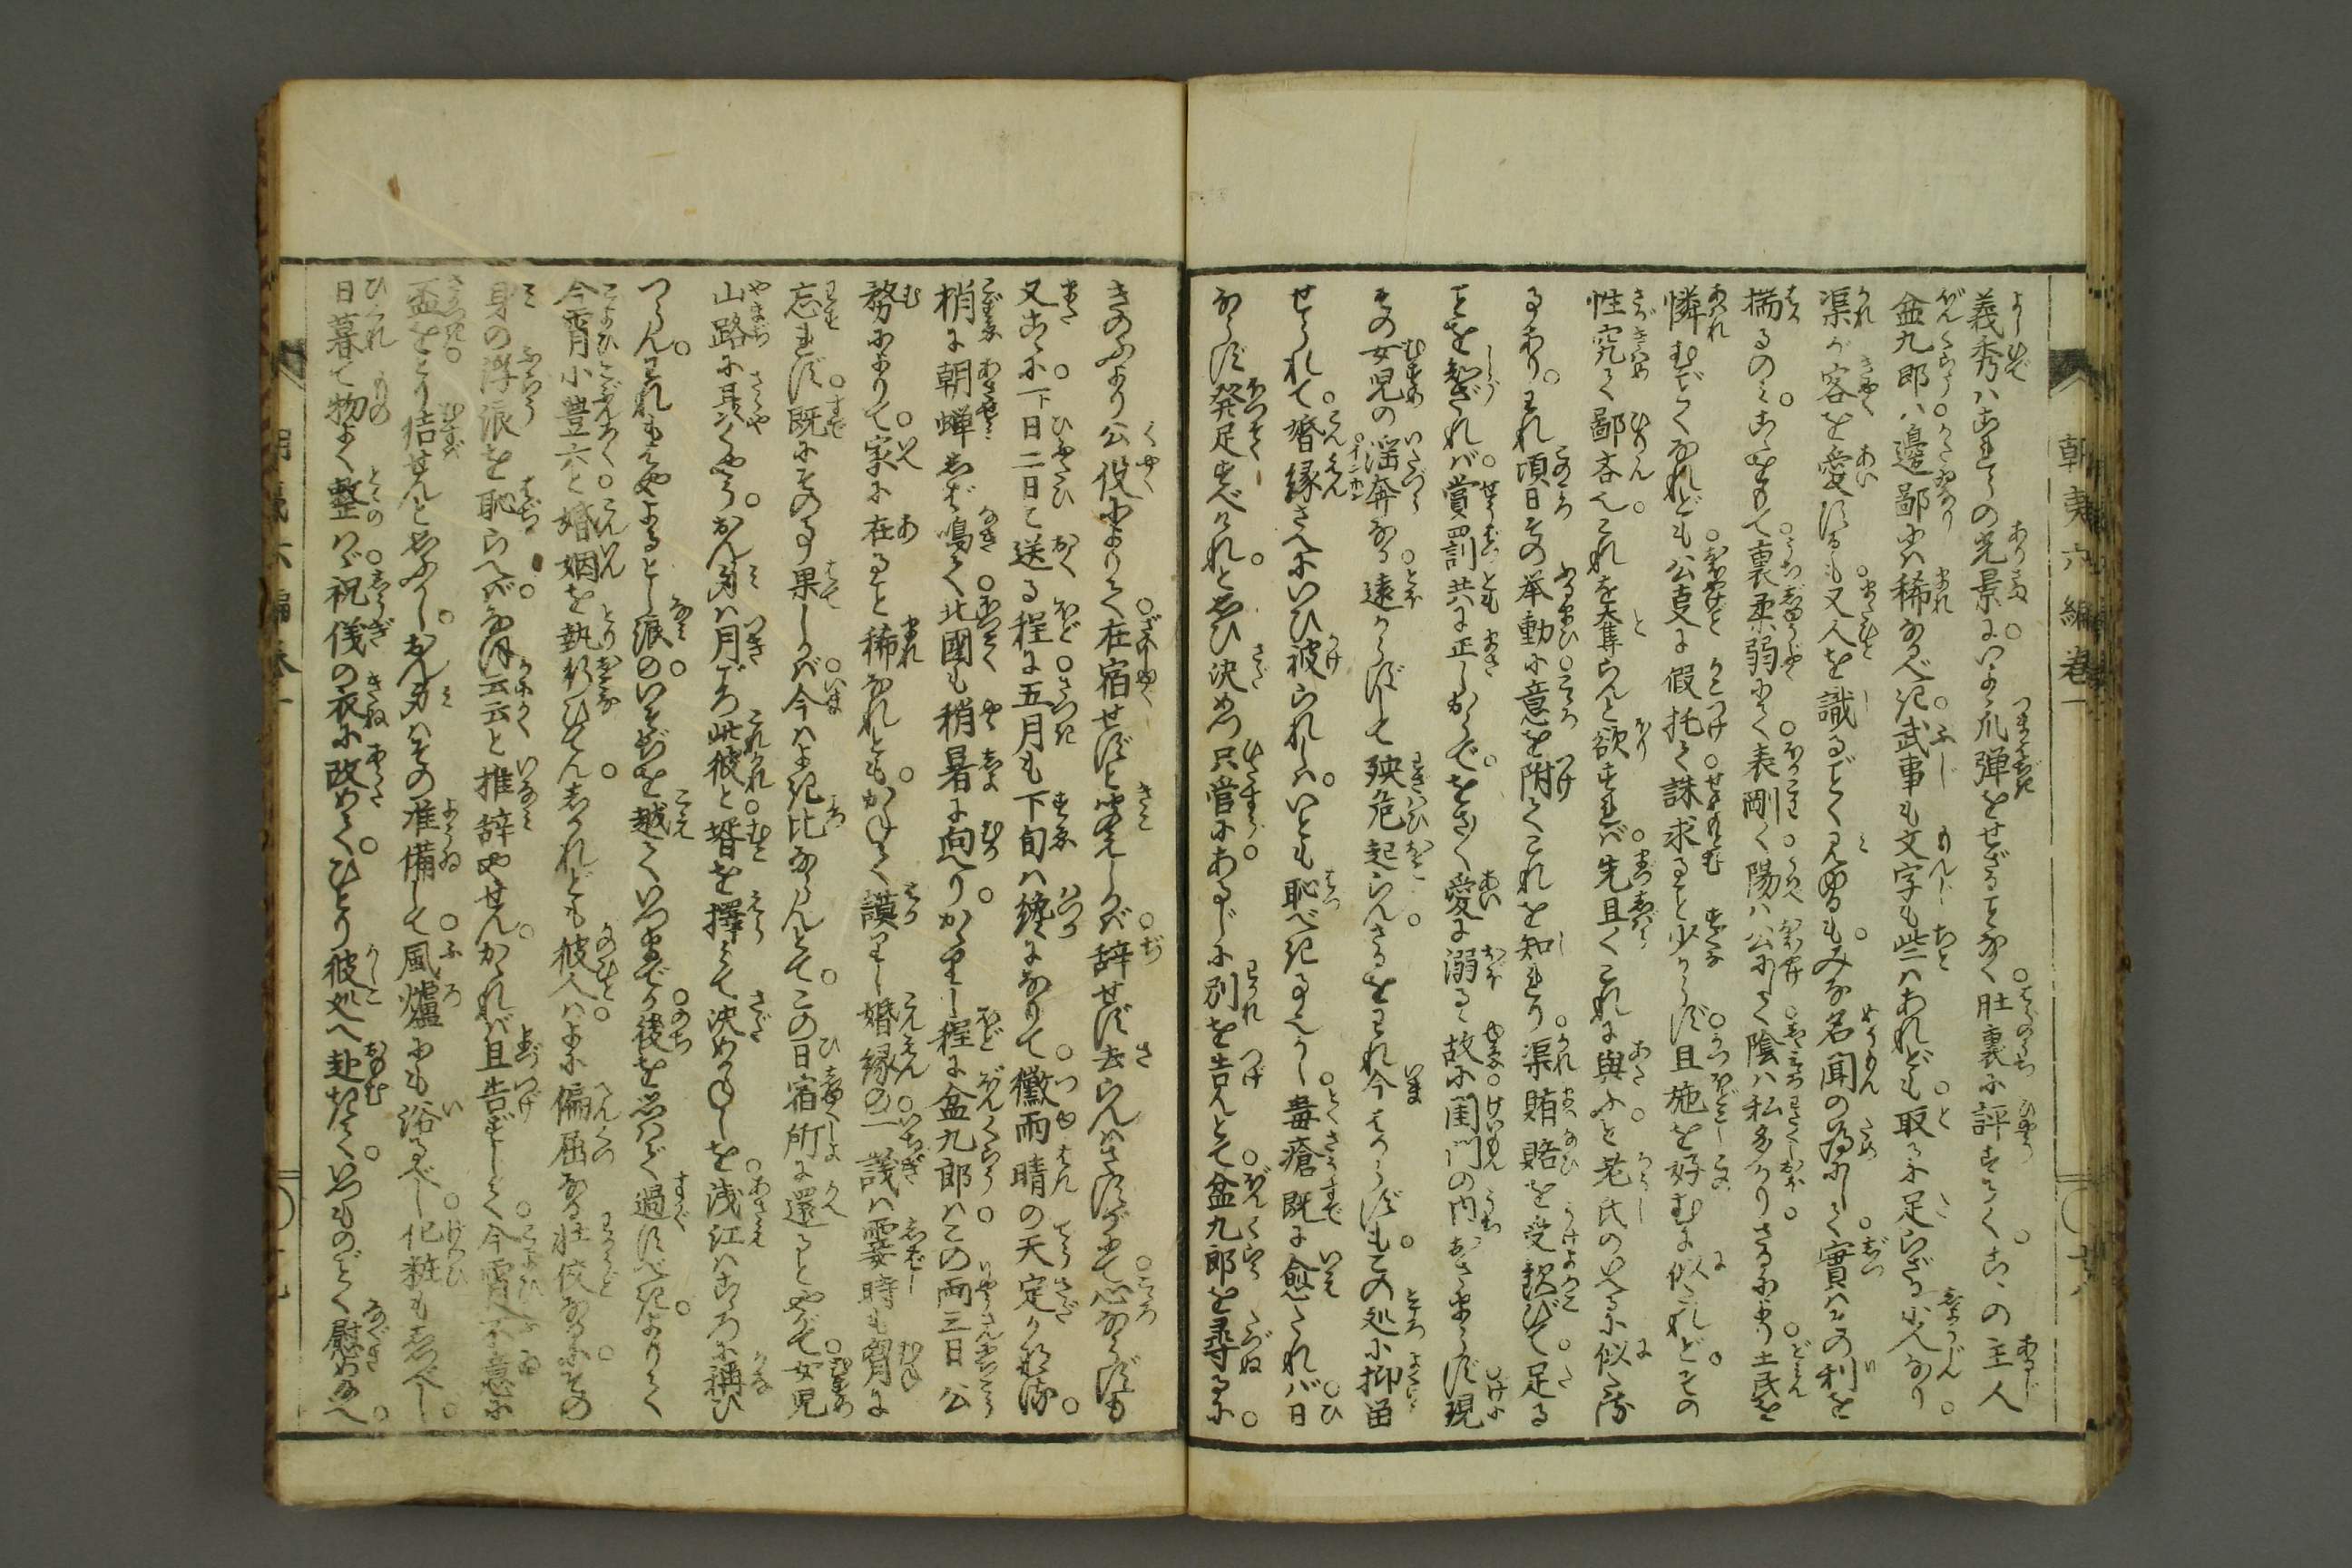 朝夷六編巻一
義秀ハこれらの光景に。いよゝ爪弾をせざることなく。肚裏に評すらく。こゝの主人
盆九郎ハ。邊鄙にハ稀なるべき。武事も文字も些ハあれども。取るに足らざる小人なり。
渠が客を愛するも。又人を識るごとく見ゆるも。みな名聞の為にして。實ハその利を
揣るのミ。こゝをもて。裏柔弱にして。表剛く。陽ハ公にして。陰ハ私多かり。さるにより。土民を
憐むごとくなれども。公事に假托て。誅求ること少からず。且施を好むに似たれど。その
性究て鄙吝也。これを奪らんと欲すれバ。先且くこれに與ふと。老氏のいへるに似たる
事あり。われ頃日その挙動に。意を附てこれを知れり。渠賄賂を受歓びて。足る
ことを知ざれバ。賞罰共に正しからで。をさ〳〵愛に溺るゝ故に。閨門の内おさまらず。現
その女児の淫奔なる。遠からずして殃危起らん。さるをわれ今はからずも。この処に抑留
せられて。婚縁さへにいひ被られしハ。いとも恥べき事ぞかし。毒瘡既に愈たれバ。日
ならず発足すべけれ。と思ひ決めつ。只管に。あるじに別を告んとて。盆九郎を尋るに。
きのふより公役によりて。在宿せずと聞えしかバ。辞せず去らんハさすがにて。心ならずも
又こゝに。一日二日と送る程に。五月も下旬ハ纔になりて。黴雨晴の天定りながら。
梢に朝蝉しば鳴て。北國も稍暑に向へり。かゝりし程に盆九郎ハ。この両三日公
務によりて。家に在ること稀なれども。かねて謨りし婚縁の一議ハ。霎時も胸に
忘れず。既にその事果しかバ。今ハよき比ならんとて。この日宿所に還るとやがて。女児
山路に耳語くやう。おん身ハ月ごろ此彼と。壻を擇みて決めかねしを。浅江ハこゝろに稱ひ
つらん。われもはやよると
今宵小豊六と。婚姻を執行ひてん。しかれども彼人ハ。よに偏屈なる壮佼なるに。その
身の浮浪を恥らへバ。云云と推辞やせん。かゝれバ且告ずして。今宵不意に
盃をとり結せんと思ふかし。おん身ハその准備して。風爐にも浴るべし。化粧もしつべし。
日暮て物よく整はゞ。祝儀の衣に改めて。ひとり彼処へ赴きて。いつものごとく慰め給へ。